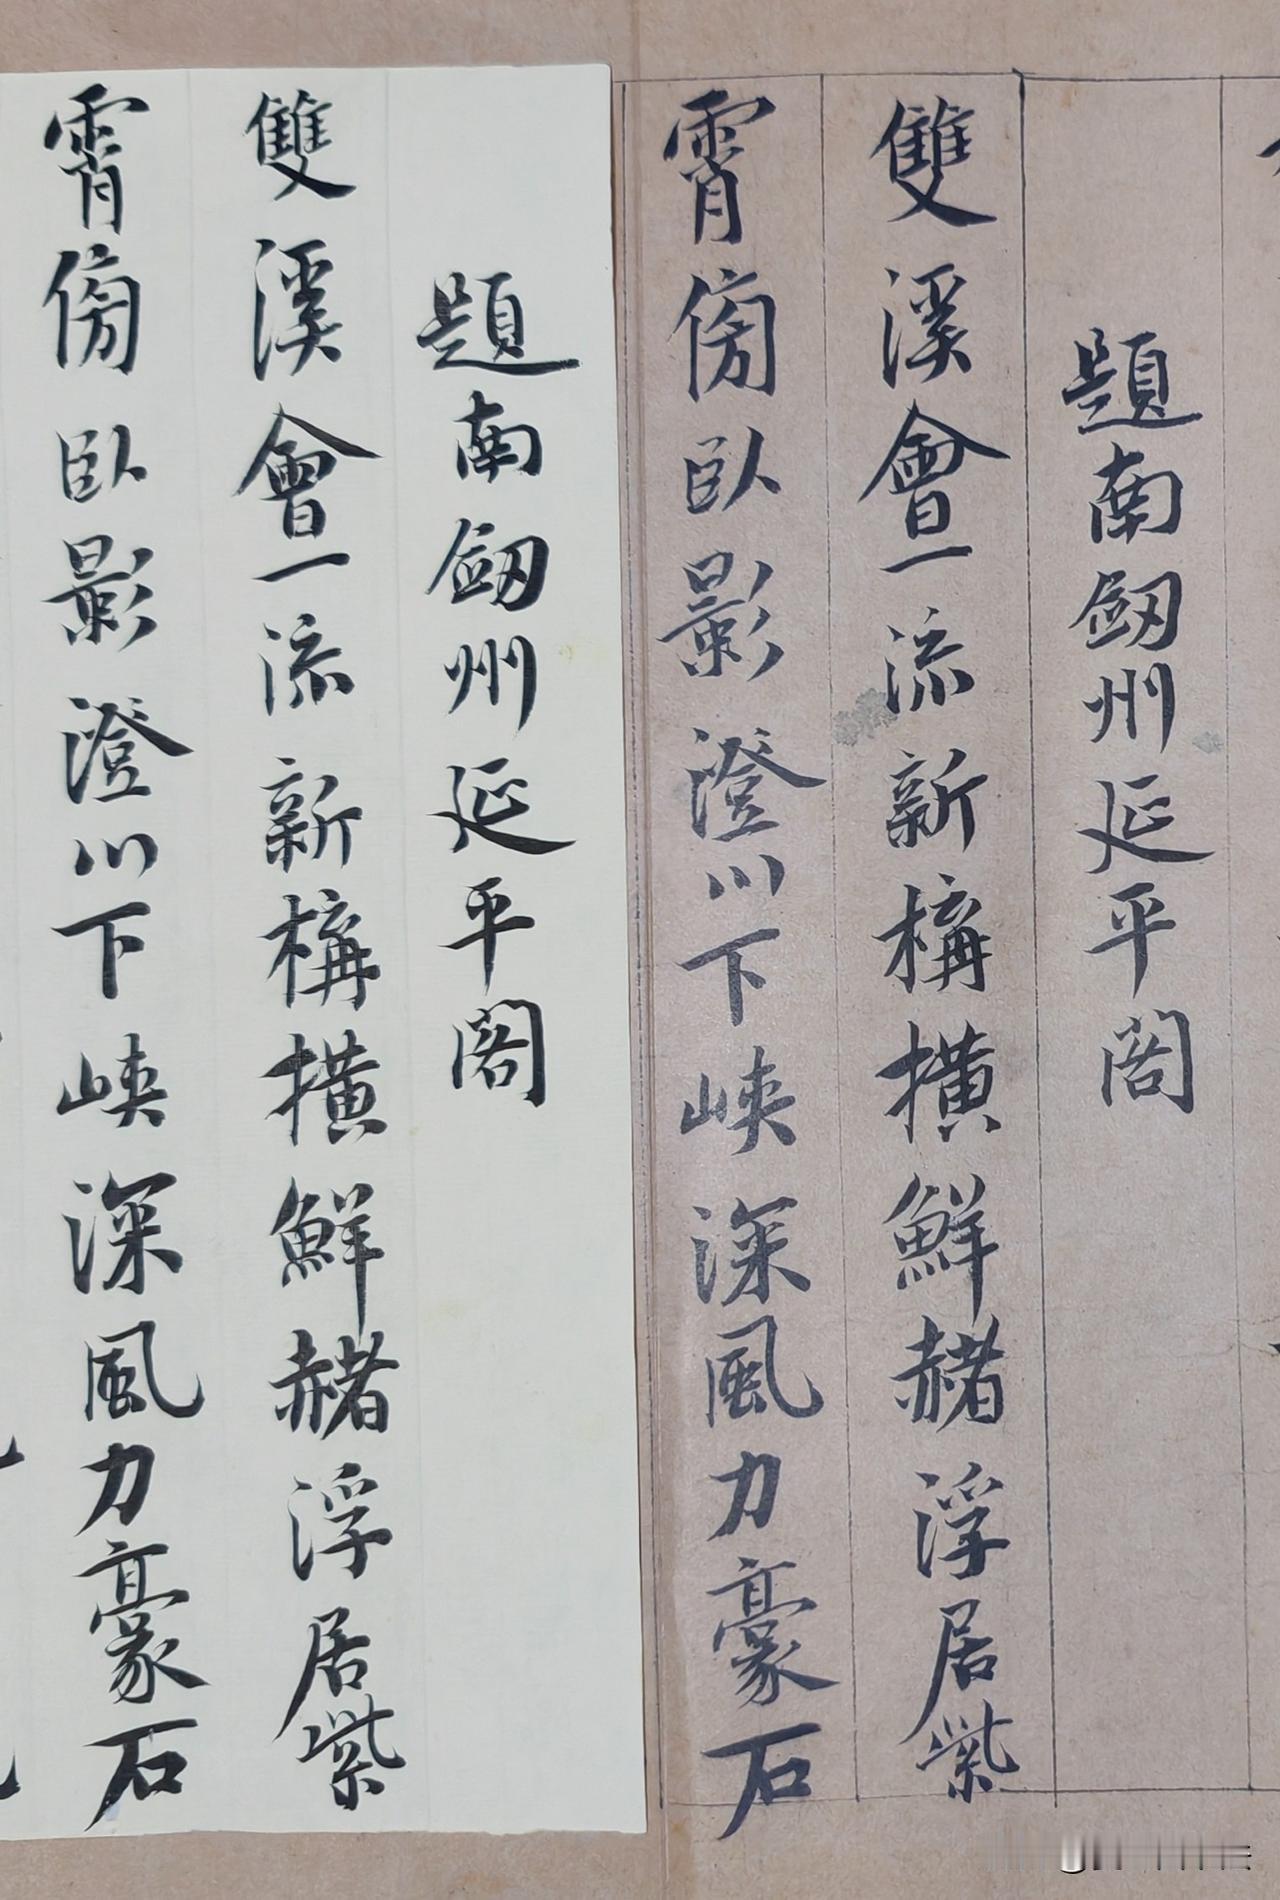 題南劔州延平閣
雙溪會一流新構橫鮮赭浮居紫
霄傍臥影澄川下峽深風力豪石
題南劔州延平閣
雙溪會一流新構橫鮮赭浮居紫
霄傍臥影澄川下峽深風力豪石